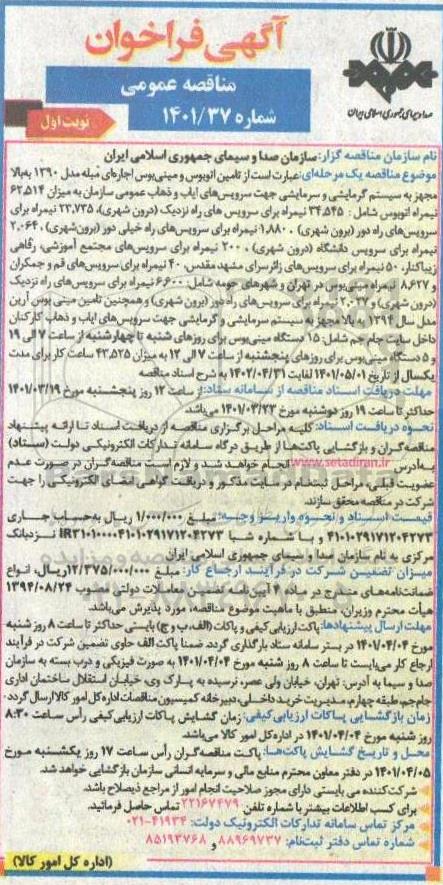 آگهی فراخوان
مناقصه عمومی
شماره ۱۴۰۱/۳۷
نوبت اول
صدا و سیمای جمهوری اسلامی ایران
نام سازمان مناقصه گزار: سازمان صدا و سیمای جمهوری اسلامی ایران
موضوع مناقصه یک مرحله‌ای: عبارت است از تامین اتوبوس و مینی‌بوس اجاره‌ای مبله مدل ۱۳۹۰ به‌بالا
مجهز به سیستم گرمایشی و سرمایشی جهت سرویس‌های ایاب و ذهاب عمومی سازمان به میزان ۶۲,۵۱۴
نیمراه اتوبوس شامل: ۳۴,۵۴۵ نیمراه برای سرویس های راه نزدیک (درون شهری)، ۲۳,۷۳۵ نیمراه برای
سرویس‌های راه دور (برون شهری)، ۱,۸۸۰ نیمراه برای سرویس‌های راه خیلی دور (برون‌شهری)، ۲,۰۶۴
نیمراه برای سرویس دانشگاه (درون شهری)، ۲۰۰ نیمراه برای سرویس‌های مجتمع آموزشی، رفاهی
زیباکنار، ۵۰ نیمراه برای سرویس‌های زائرسرای مشهد مقدس، ۴۰ نیمراه برای سرویس‌های قم و جمکران
و ۸,۶۲۷ نیمراه مینی‌بوس در تهران و شهرهای حومه شامل: ۶,۶۰۰ نیمراه برای سرویس‌های راه نزدیک
(درون شهری) و ۲,۰۲۷ نیمراه برای سرویس‌های راه دور (برون شهری) و همچنین تامین مینی بوس آرین
مدل سال ۱۳۹۴ به بالا مجهز به سیستم سرمایشی و گرمایشی جهت سرویس‌های ایاب و ذهاب کارکنان
داخل سایت جام جم شامل: ۱۵ دستگاه مینی‌بوس برای روزهای شنبه تا چهارشنبه از ساعت ۷ الی ۱۹
و ۵ دستگاه مینی‌بوس برای روزهای پنجشنبه از ساعت ۷ الی ۱۲ به میزان ۴۳,۵۲۵ ساعت کار برای مدت
یکسال از تاریخ ۱۴۰۱/۰۵/۰۱ لغایت ۱۴۰۲/۰۴/۳۱ به شرح اسناد مناقصه
مهلت دریافت اسناد مناقصه از سامانه ستاد: از ساعت ۱۲ روز پنجشنبه مورخ ۱۴۰۱/۰۳/۱۹
حداکثر تا ساعت ۱۹ روز دوشنبه مورخ ۱۴۰۱/۰۳/۲۳ می‌باشد.
نحوه دریافت اسناد: کلیه مراحل برگزاری مناقصه از دریافت اسناد تا ارائه پیشنهاد
مناقصه‌گران و بازگشایی پاکت‌ها از طریق درگاه سامانه تدارکات الکترونیکی دولت (ستاد)
به‌آدرس www.setadiran.ir انجام خواهد شد و لازم است مناقصه‌گران در صورت عدم
عضویت قبلی، مراحل ثبت‌نام در سایت مذکور و دریافت گواهی امضای الکترونیکی را جهت
شرکت در مناقصه محقق سازند.
قیمت اسناد و نحوه واریز وجه: مبلغ ۱/۰۰۰/۰۰۰ ریال به‌حساب جاری
۴۱۰۱۰۲۹۱۷۱۲۰۴۲۷۳ و با شماره شبا IR۳۱۰۱۰۰۰۰۴۱۰۱۰۲۹۱۷۱۲۰۴۲۷۳ نزدبانک
مرکزی به نام سازمان صدا و سیمای جمهوری اسلامی ایران
میزان تضمین شرکت در فرآیند ارجاع کار: مبلغ ۱۲/۳۷۵/۰۰۰/۰۰۰ ریال، انواع
ضمانت‌نامه‌های مندرج در ماده ۴ آیین نامه تضمین معاملات دولتی مصوب ۱۳۹۴/۰۸/۲۴
هیأت محترم وزیران، منطبق با ماهیت موضوع مناقصه، مورد پذیرش می‌باشد.
مهلت ارسال پیشنهادها: پاکت ارزیابی کیفی و پاکات (الف، ب و ج) بایستی حداکثر تا ساعت ۸ روز شنبه
مورخ ۱۴۰۱/۰۴/۰۴ در بستر سامانه ستاد بارگذاری گردد. ضمنا پاکت الف حاوی تضمین شرکت در فرآیند
ارجاع کار می‌بایست تا ساعت ۸ روز شنبه مورخ ۱۴۰۱/۰۴/۰۴ به صورت فیزیکی و درب بسته به سازمان
صدا و سیما به آدرس: تهران، خیابان ولی عصر، نرسیده به پارک وی، خیابان استقلال ساختمان اداری
جام‌جم، طبقه چهارم، مدیریت خرید داخلی، دبیرخانه کمیسیون مناقصات اداره کل امور کالا ارسال گردد.
زمان بازگشایی پاکات ارزیابی‌کیفی: زمان گشایش پاکات ارزیابی‌کیفی رأس ساعت ۸:۳۰
روز شنبه مورخ ۱۴۰۱/۰۴/۰۴ در اداره کل امور کالا می‌باشد.
محل و تاریخ گشایش پاکت‌ها: پاکت مناقصه‌گران رأس ساعت ۱۷ روز یکشنبه مورخ
۱۴۰۱/۰۴/۰۵ در دفتر معاون محترم منابع مالی و سرمایه انسانی سازمان بازگشایی خواهد شد.
شرکت‌کننده می بایستی دارای مجوز صلاحیت انجام امور از مراجع ذیصلاح باشد.
برای کسب اطلاعات بیشتر با شماره تلفن ۲۲۱۶۷۴۷۹ تماس حاصل فرمائید.
مرکز تماس سامانه تدارکات الکترونیک دولت: ۰۲۱-۴۱۹۳۴
شماره تماس دفتر ثبت‌نام: ۸۸۹۶۹۷۳۷ و ۸۵۱۹۳۷۶۸
(اداره کل امور کالا)